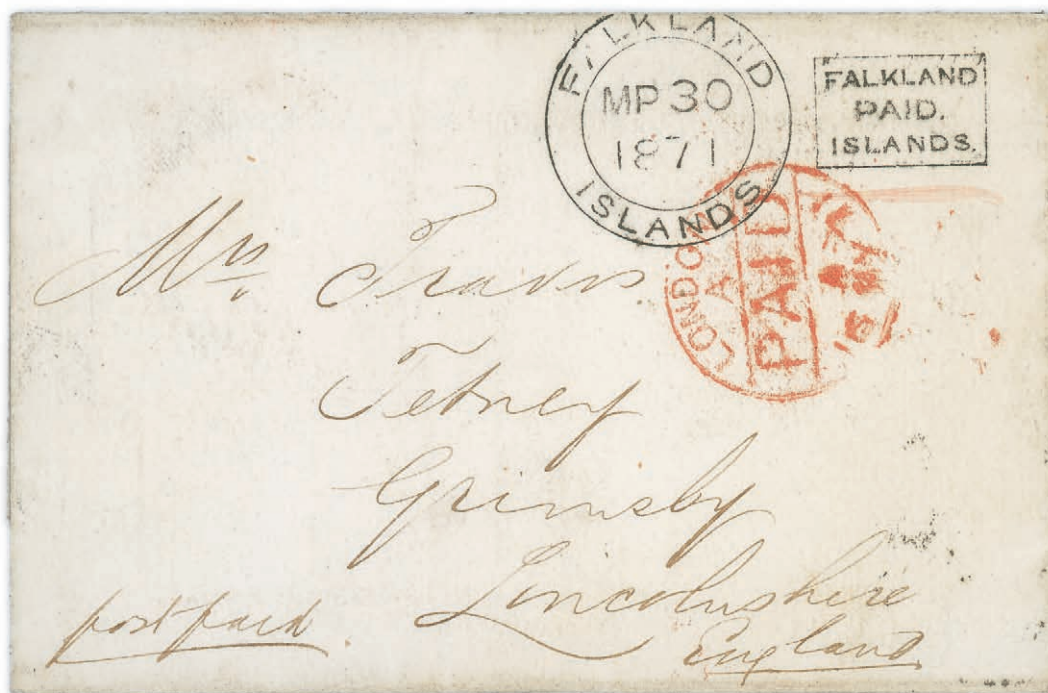 FALKLAND
ISLANDS
MP 30
1871
FALKLAND
PAID.
ISLANDS.
LONDON
A
PAID
Mrs. Travis
Tetney
Grimsby
Lincolnshire
England
post paid